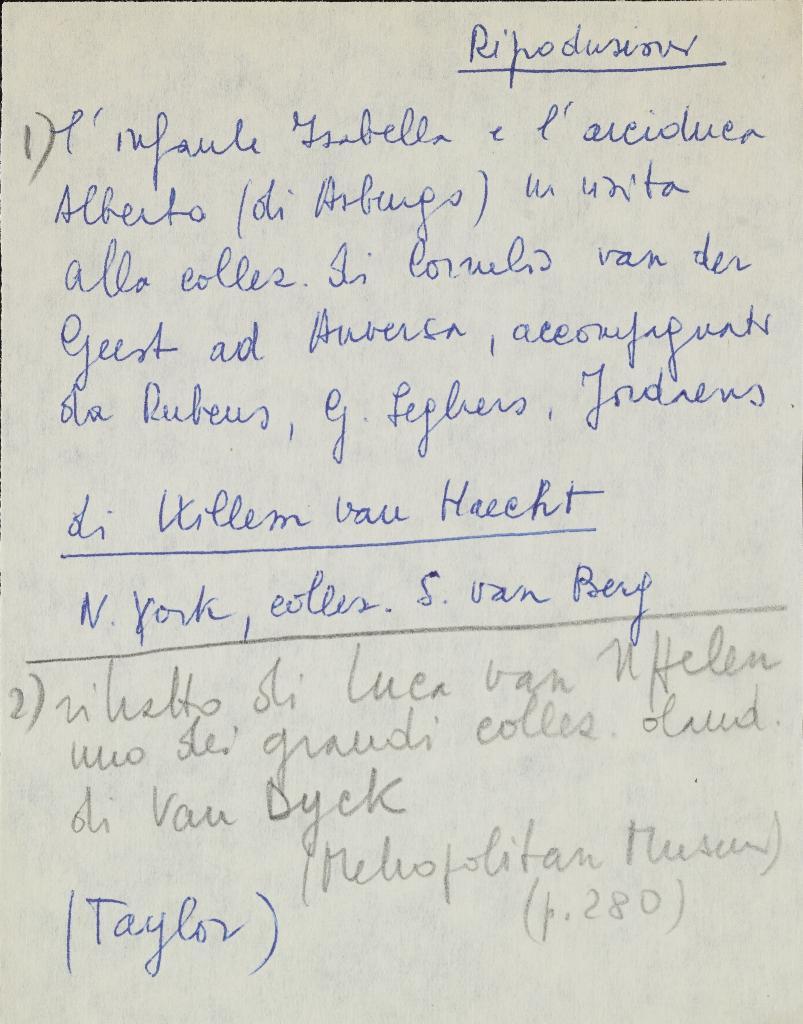 Riproduzioni
1) l'infante Isabella e l'arciduca
Alberto (di Asburgo) in visita
alla collez. di Cornelis van der
Geest ad Anversa, accompagnati
da Rubens, G. Seghers, Jordaens
di Willem van Haecht
N. York, collez. S. van Berg
2) ritratto di Luca van Uffelen
uno dei grandi collez. oland.
di Van Dyck
(Metropolitan Museum)
(p. 280)
(Taylor)